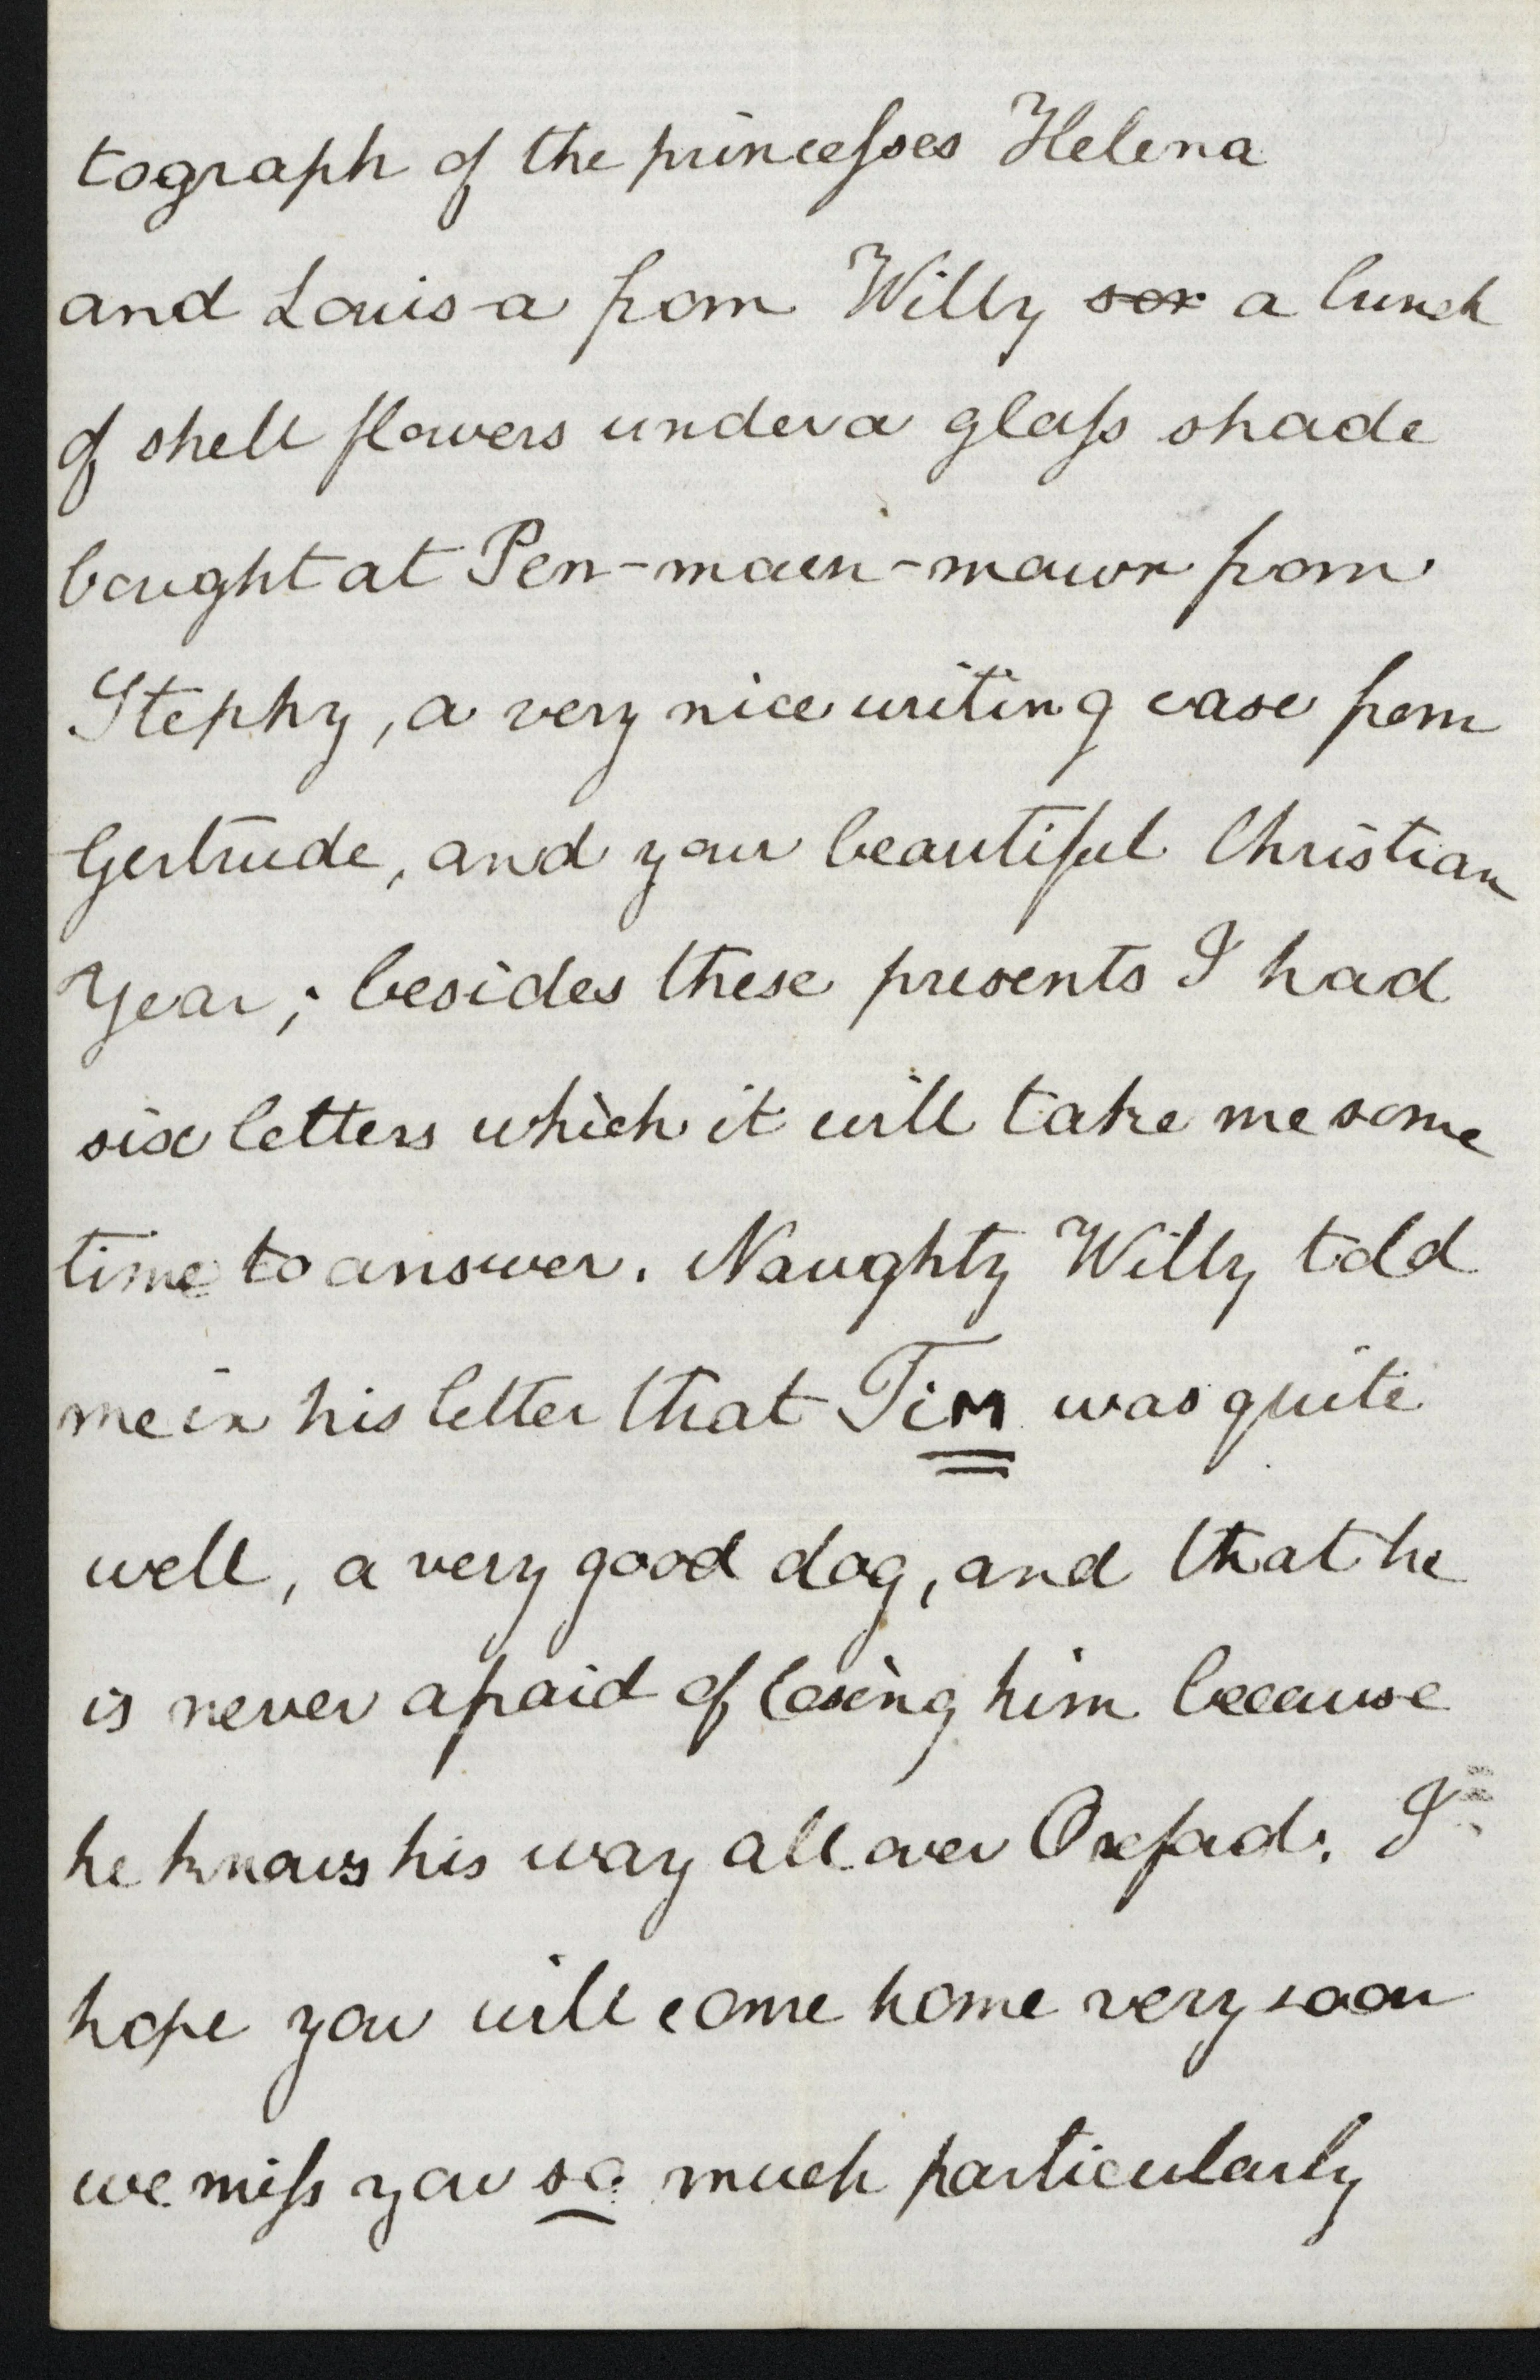 tograph of the princesses Helena
and Louis-a from Willy sor a bunch
of shell flowers under a glass shade
bought at Pen-maen-mawr from
Stephy, a very nice writing case from
Gertrude, and your beautiful Christian
Year; besides these presents I had
six letters which it will take me some
time to answer. Naughty Willy told
me in his letter that TiM was quite
well, a very good dog, and that he
is never afraid of losing him because
he knows his way all over Oxford. I
hope you will come home very soon
we miss you so much particularly